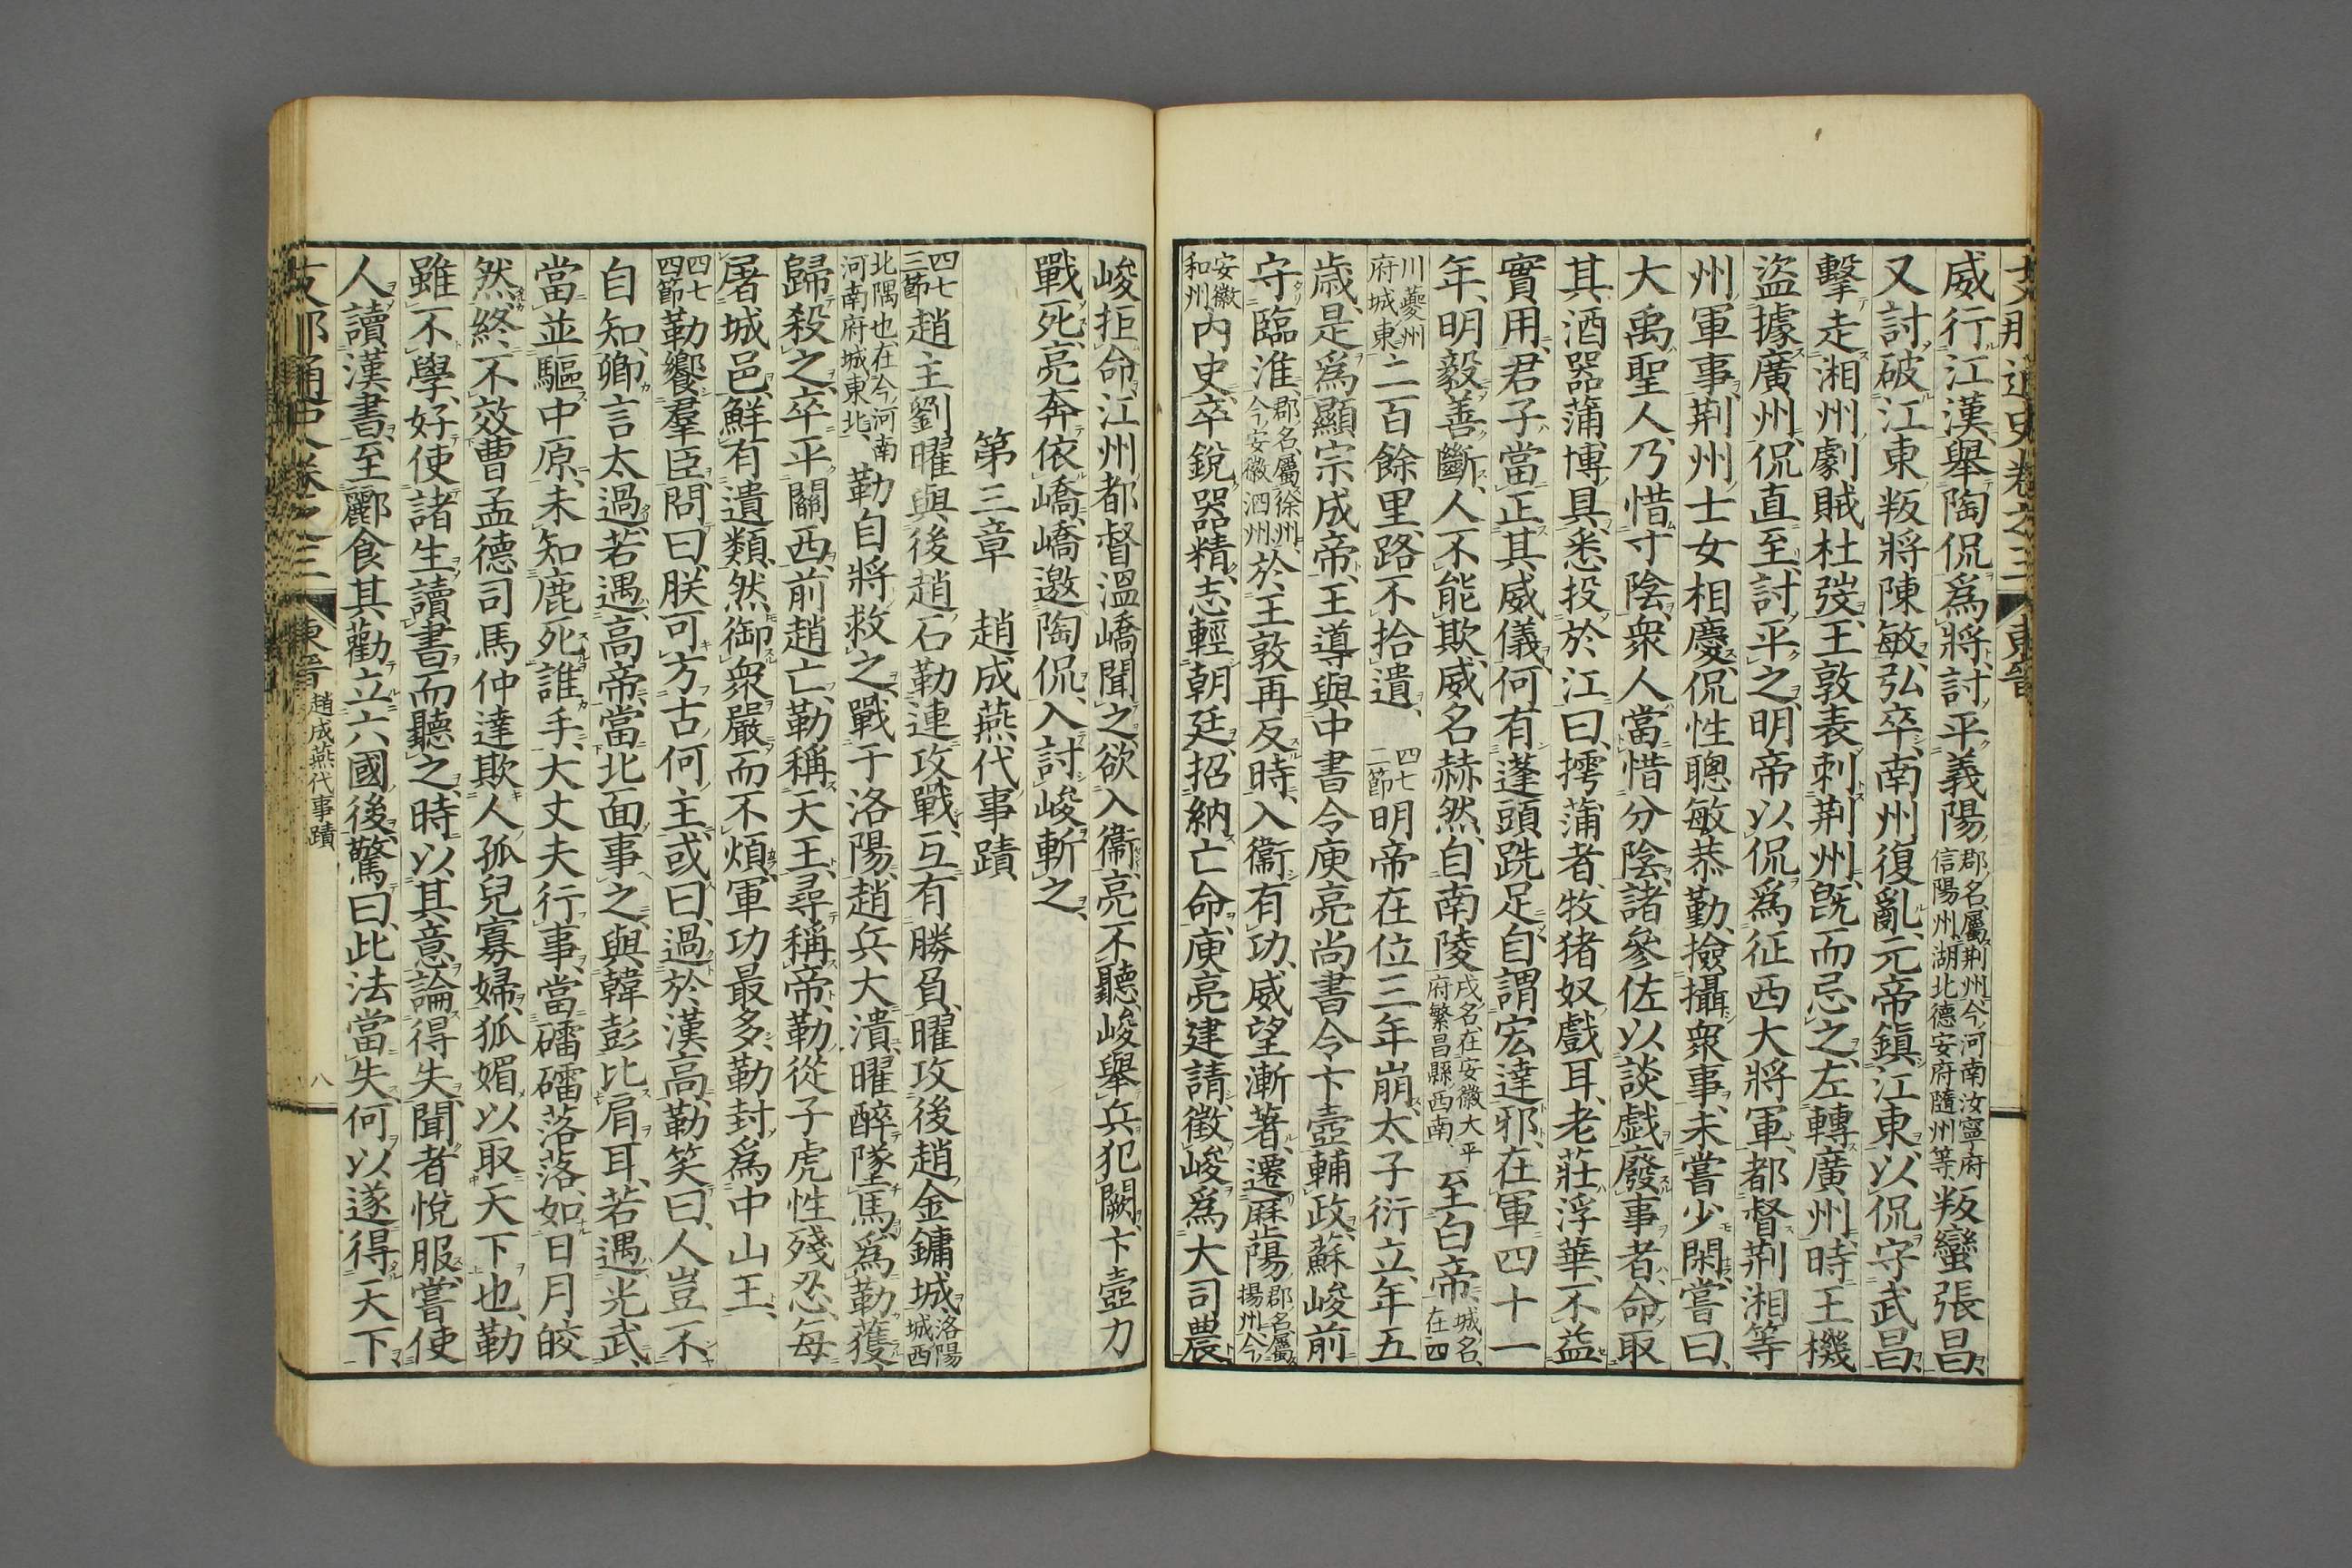 威行江漢、舉陶侃爲將、討平義陽郡名、屬荊州、今河南汝寧府信陽州、湖北德安府隨州等、叛蠻張昌、
又討破江東叛將陳敏、弘卒、南州復亂、元帝鎭江東、以侃守武昌、
擊走湘州劇賊杜弢、王敦表刺荊州、既而忌之、左轉廣州、時王機
盜據廣州、侃直至、討平之、明帝以侃爲征西大將軍、都督荊湘等
州軍事、荊州士女相慶、侃性聰敏恭勤、撿攝衆事、未嘗少閑、嘗曰、
大禹聖人、乃惜寸陰、衆人當惜分陰、諸參佐以談戲廢事者、命取
其酒器蒲博具、悉投於江曰、摴蒲者、牧猪奴戲耳、老莊浮華、不益
實用、君子當正其威儀、何有蓬頭跣足、自謂宏達邪、在軍四十一
年、明毅善斷、人不能欺、威名赫然、自南陵戌名、在安徽大平府繁昌縣西南、至白帝、城名、在四
川夔州府城東、二百餘里、路不拾遺、四七二節明帝在位三年崩、太子衍立、年五
歲、是爲顯宗成帝、王導與中書令庾亮尚書令卞壼輔政、蘇峻前
守臨淮郡名、屬徐州、今安徽泗州、於王敦再反時、入衞有功、威望漸著、遷歷陽郡名、屬揚州、今
安徽和州內史、卒銳器精、志輕朝廷、招納亡命、庾亮建請、徵峻爲大司農、
峻拒命、江州都督溫嶠聞之、欲入衞、亮不聽、峻舉兵犯闕、卞壼力
戰死、亮奔依嶠、嶠邀陶侃、入討峻斬之、
第三章　趙成燕代事蹟、
四七三節趙主劉曜與後趙石勒連攻戰、互有勝負、曜攻後趙金鏞城、洛陽城西
北隅也、在今河南河南府城東北、勒自將救之、戰于洛陽、趙兵大潰、曜醉墜馬、爲勒獲、
歸殺之、卒平關西、前趙亡、勒稱天王、尋稱帝、勒從子虎性殘忍、每
屠城邑、鮮有遺類、然御衆嚴而不煩、軍功最多、勒封爲中山王、
四七四節勒饗羣臣、問曰、朕可方古何主、或曰、過於漢高、勒笑曰、人豈不
自知、卿言太過、若遇高帝、當北面事之、與韓彭比肩耳、若遇光武、
當並驅中原、未知鹿死誰手、大丈夫行事、當礌礌落落、如日月皎
然、終不效曹孟德司馬仲達欺人孤兒寡婦、狐媚以取天下也、勒
雖不學、好使諸生讀書而聽之、時以其意、論得失、聞者悅服、嘗使
人讀漢書、至酈食其勸立六國後、驚曰、此法當失、何以遂得天下
支那通史卷之三　東晉　趙成燕代事蹟　八